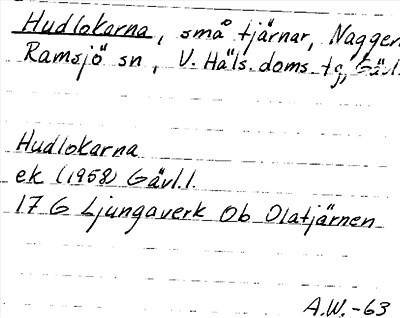 Hudlokarna, små tjärnar, Naggen
Ramsjö sn, V. Häls. doms. tg, Gävl.
Hudlokarna
ek (1958) Gävl.l.
17 G Ljungaverk Ob Olatjärnen
A.W. -63